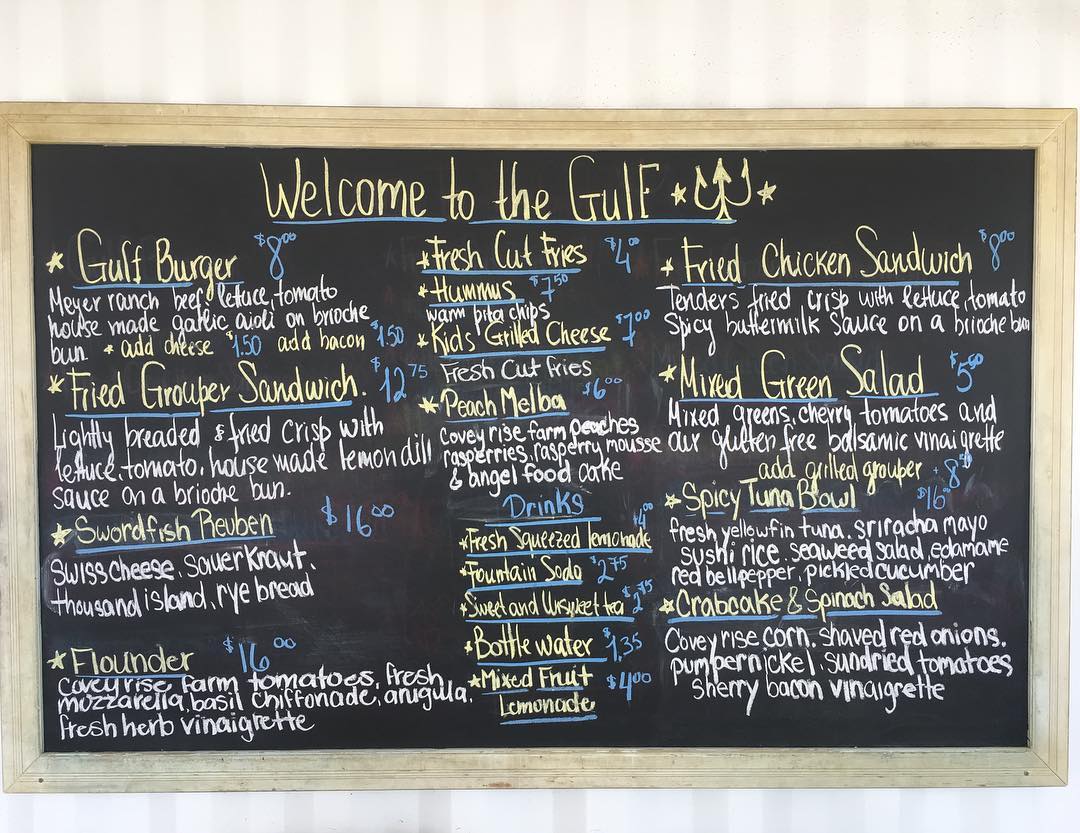 Welcome to the Gulf
Gulf Burger $8.00
Meyer ranch beef, lettuce, tomato
house made garlic aioli on brioche
bun * add cheese $1.50 add bacon 1.50
Fried Grouper Sandwich. $12.75
Lightly breaded & fried crisp with
lettuce, tomato, house made lemon dill
sauce on a brioche bun.
Swordfish Reuben $16.00
Swiss cheese, Sauerkraut,
thousand island, rye bread
Flounder $16.00
covey rise farm tomatoes, fresh
mozzarella, basil chiffonade, arugula,
fresh herb vinaigrette
Fresh Cut Fries $4.00
Hummus $7.50
warm pita chips
Kids Grilled Cheese $7.00
Fresh Cut Fries
Peach Melba $6.00
Covey rise farm peaches
raspberries, rasperry mousse
& angel food cake
Drinks
Fresh Squeezed lemonade $4.00
Fountain Soda $2.75
Sweet and Unsweet tea $2.75
Bottle water $1.35
Mixed Fruit $4.00
Lemonade
Fried Chicken Sandwich $8.00
Tenders fried crisp with lettuce, tomato
Spicy buttermilk sauce on a brioche bun
Mixed Green Salad $5.50
Mixed greens, cherry tomatoes and
our gluten free balsamic vinaigrette
add grilled grouper + 8.50
Spicy Tuna Bowl $16.00
fresh yellowfin tuna, sriracha mayo
sushi rice, seaweed salad, edamame
red bell pepper, pickled cucumber
Crabcake & Spinach Salad
Covey rise corn, shaved red onions,
pumpernickel, sundried tomatoes,
sherry bacon vinaigrette